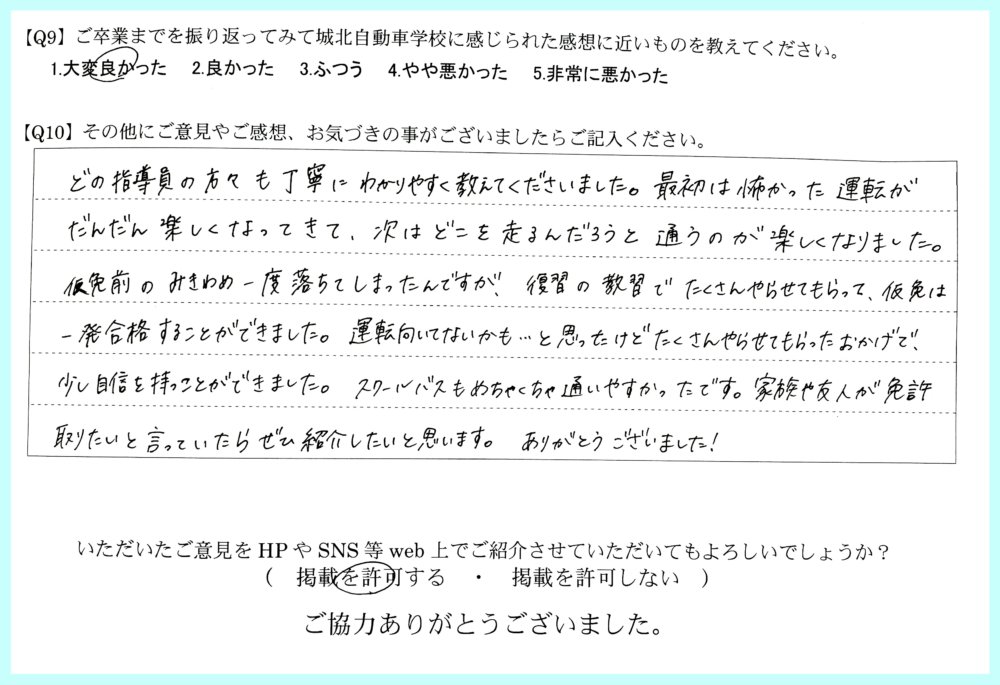 【Q9】ご卒業までを振り返ってみて城北自動車学校に感じられた感想に近いものを教えてください。
1.大変良かった　2.良かった　3.ふつう　4.やや悪かった　5.非常に悪かった
【Q10】その他にご意見やご感想、お気づきの事がございましたらご記入ください。
どの指導員の方々も丁寧にわかりやすく教えてくださいました。最初は怖かった運転が
だんだん楽しくなってきて、次はどこを走るんだろうと通うのが楽しくなりました。
仮免前のみきわめ一度落ちてしまったんですが、復習の教習でたくさんやらせてもらって、仮免は
一発合格することができました。運転向いてないかも…と思ったけどたくさんやらせてもらったおかげで、
少し自信を持つことができました。スクールバスもめちゃくちゃ通いやすかったです。家族や友人が免許
取りたいと言っていたらぜひ紹介したいと思います。ありがとうございました!
いただいたご意見をHPやSNS等web上でご紹介させていただいてもよろしいでしょうか？
（　掲載を許可する　・　掲載を許可しない　）
ご協力ありがとうございました。